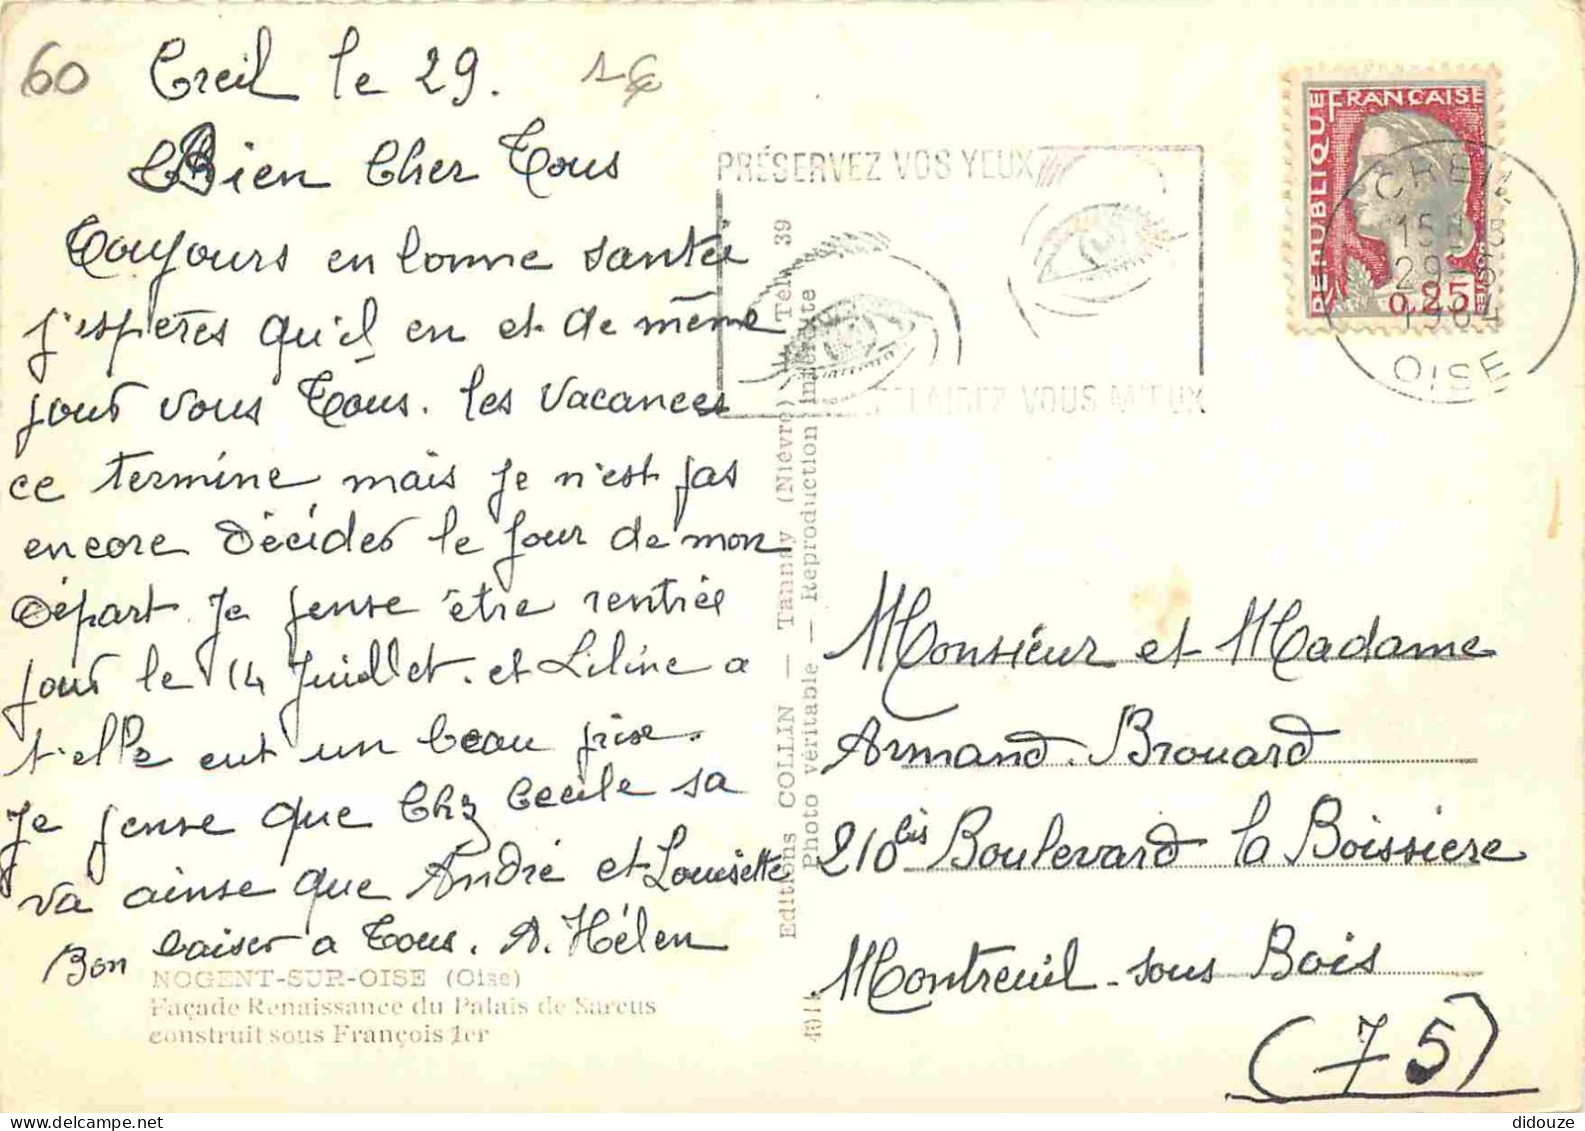 60
Creil le 29.
Bien Cher Tous
Toujours en bonne santée
j'espères qu'il en et de même
pour vous Tous. les vacances
ce termine mais je n'est pas
encore décider le jour de mon
départ. Je pense être rentrée
pour le 14 Juillet. et Liline a
t'elle eut un beau prise.
Je pense que Chez Cecile sa
va ainse que André et Louisette
Bon baiser a Tous. A. Hélen
NOGENT-SUR-OISE (Oise)
Façade Renaissance du Palais de Sarcus
construit sous François 1er
Editions COLLIN — Tannay (Nièvre) Tél. 39
Photo véritable — Reproduction interdite
PRÉSERVEZ VOS YEUX
ECLAIREZ VOUS MIEUX
RÉPUBLIQUE FRANÇAISE
0,25
CREIL
15H
29-6
1964
OISE
Monsieur et Madame
Armand. Brouard
210 bis Boulevard la Boissiere
Montreuil-sous Bois
(75)
didouze